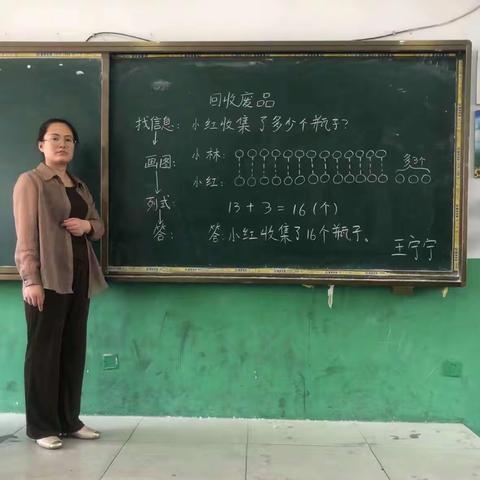 回收废品
找信息：小红收集了多少个瓶子？
画图：小林：
多3个
小红：
列式：13+3=16(个)
答：答：小红收集了16个瓶子。
王宁宁